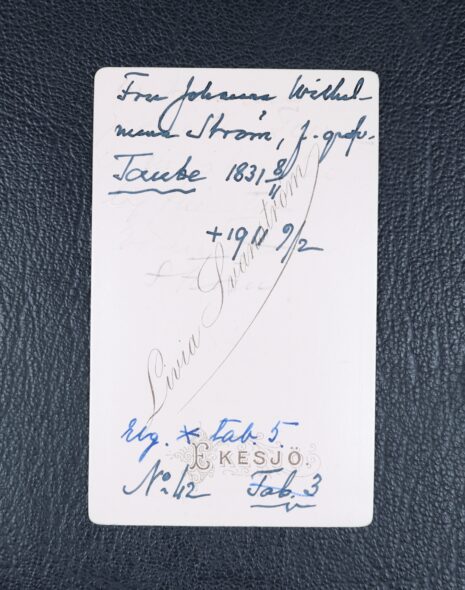 Fru Johanna Wilhel-
mina Ström, f. grefv.
Taube 1831 8/11
+1911 9/2
Livia Svanström
Elg. * tab. 5.
EKESJÖ.
No 42 Tab. 3